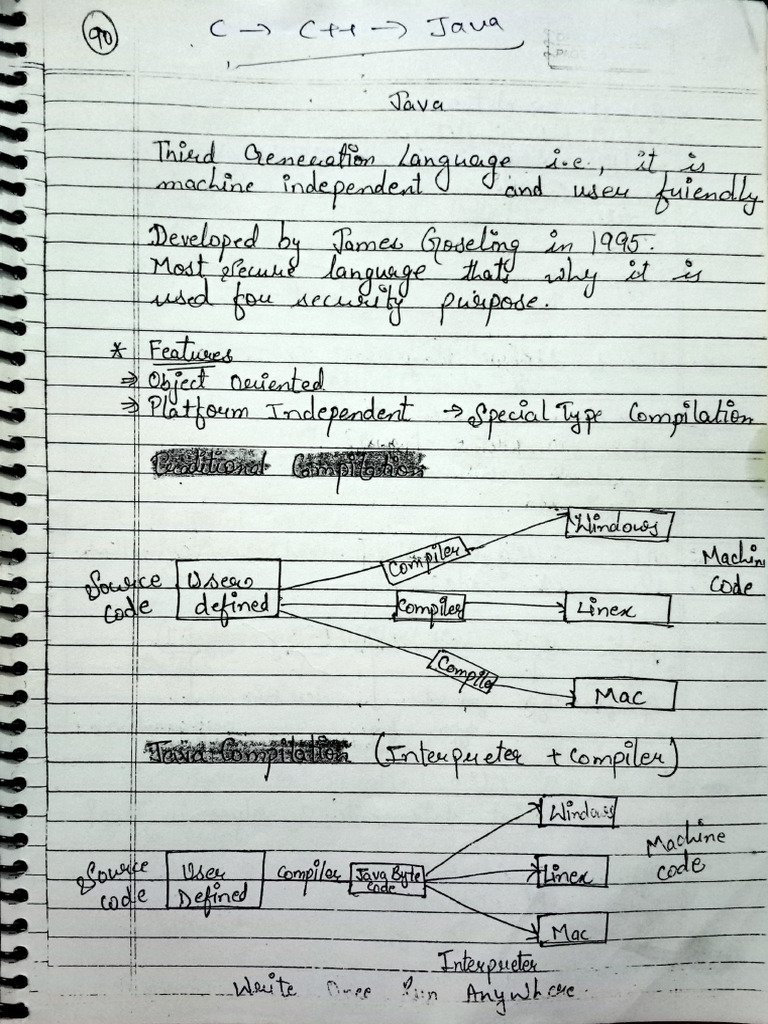 90
C → C++ → Java
Java
Third Generation Language i.e., it is
machine independent and user friendly
Developed by James Goseling in 1995.
Most secure language thats why it is
used for security purpose.
* Features
⇒ Object Oriented
⇒ Platform Independent → Special Type Compilation
Traditional Compilation
Windows
Compiler
Machin
code
Source
code
Users
defined
Compiler
Linex
Compile
Mac
Java Compilation (Interpreter + Compiler)
Windows
Machine
code
Source
code
User
Defined
Compiler
Java Byte
code
Linex
Mac
Interpreter
Write Once Run AnyWhere